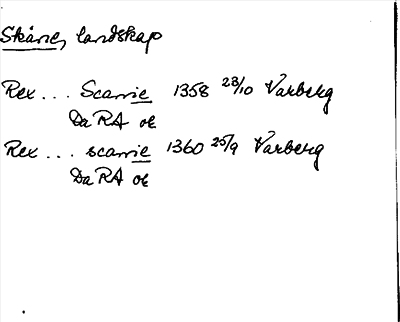 Skåne, landskap
Rex... Scanie 1358 23/10 Varberg
DaRA or
Rex... scanie 1360 25/9 Varberg
DaRA or